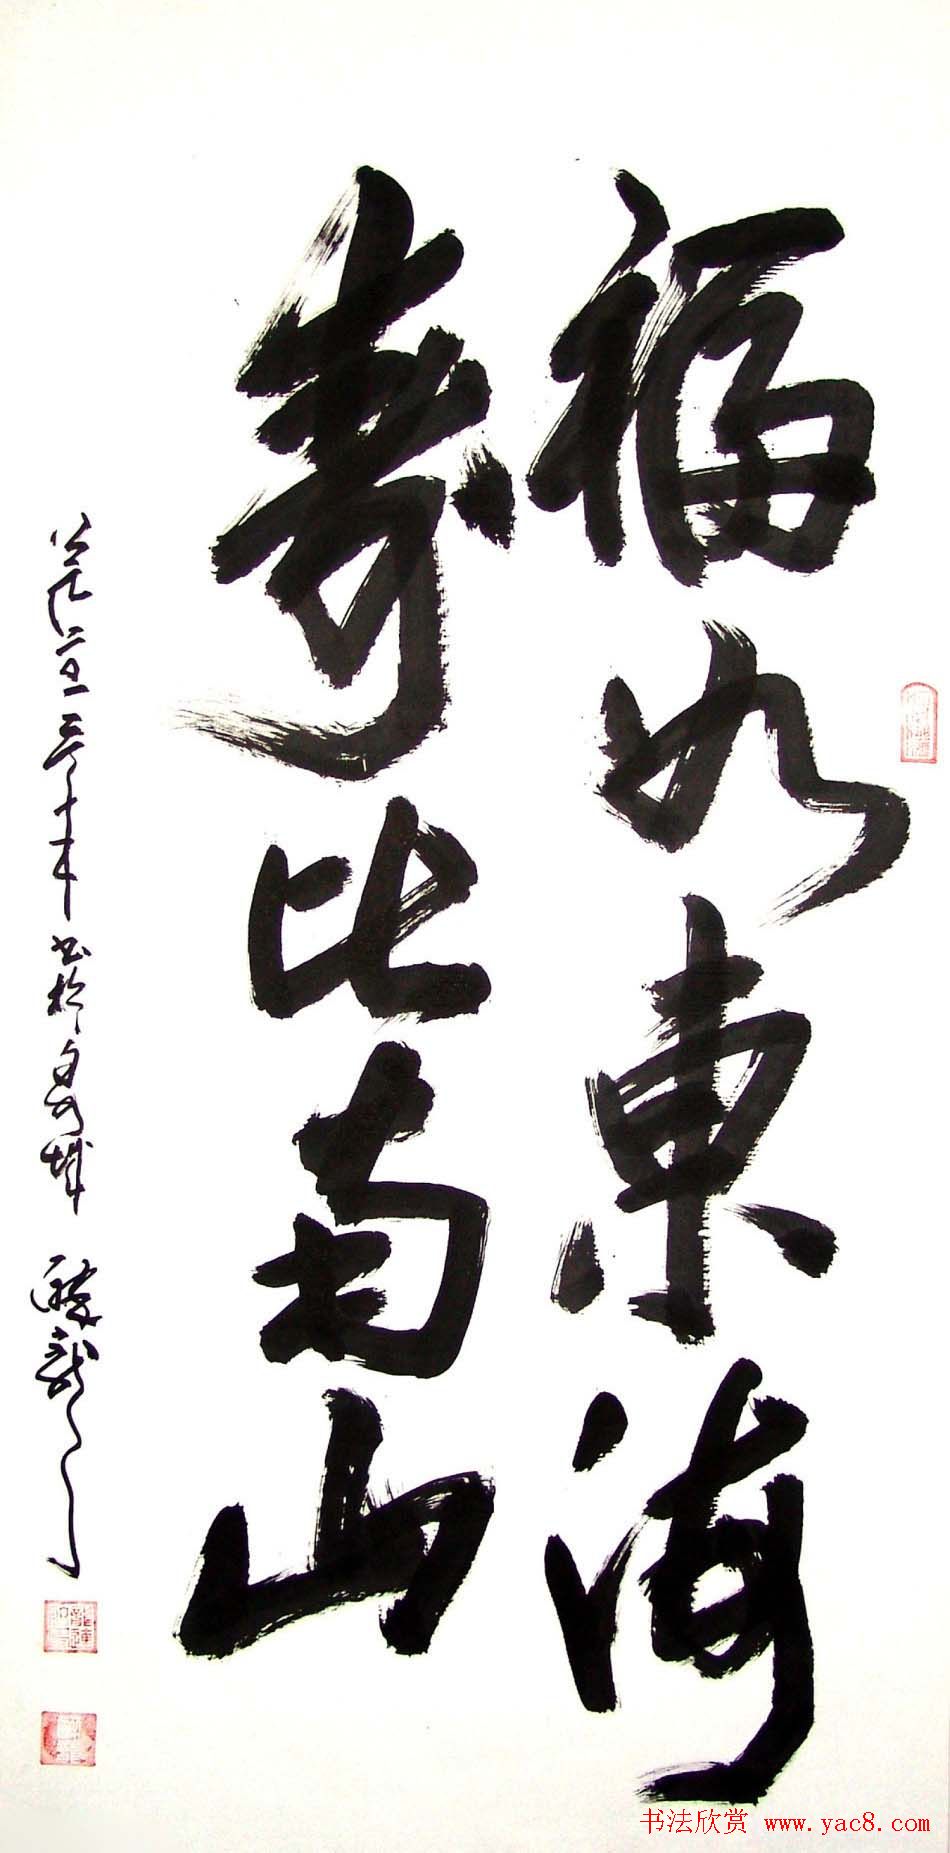 福如東海
壽比南山
公元二〇一三年十年書於
龍
书法欣赏 www.yac8.com